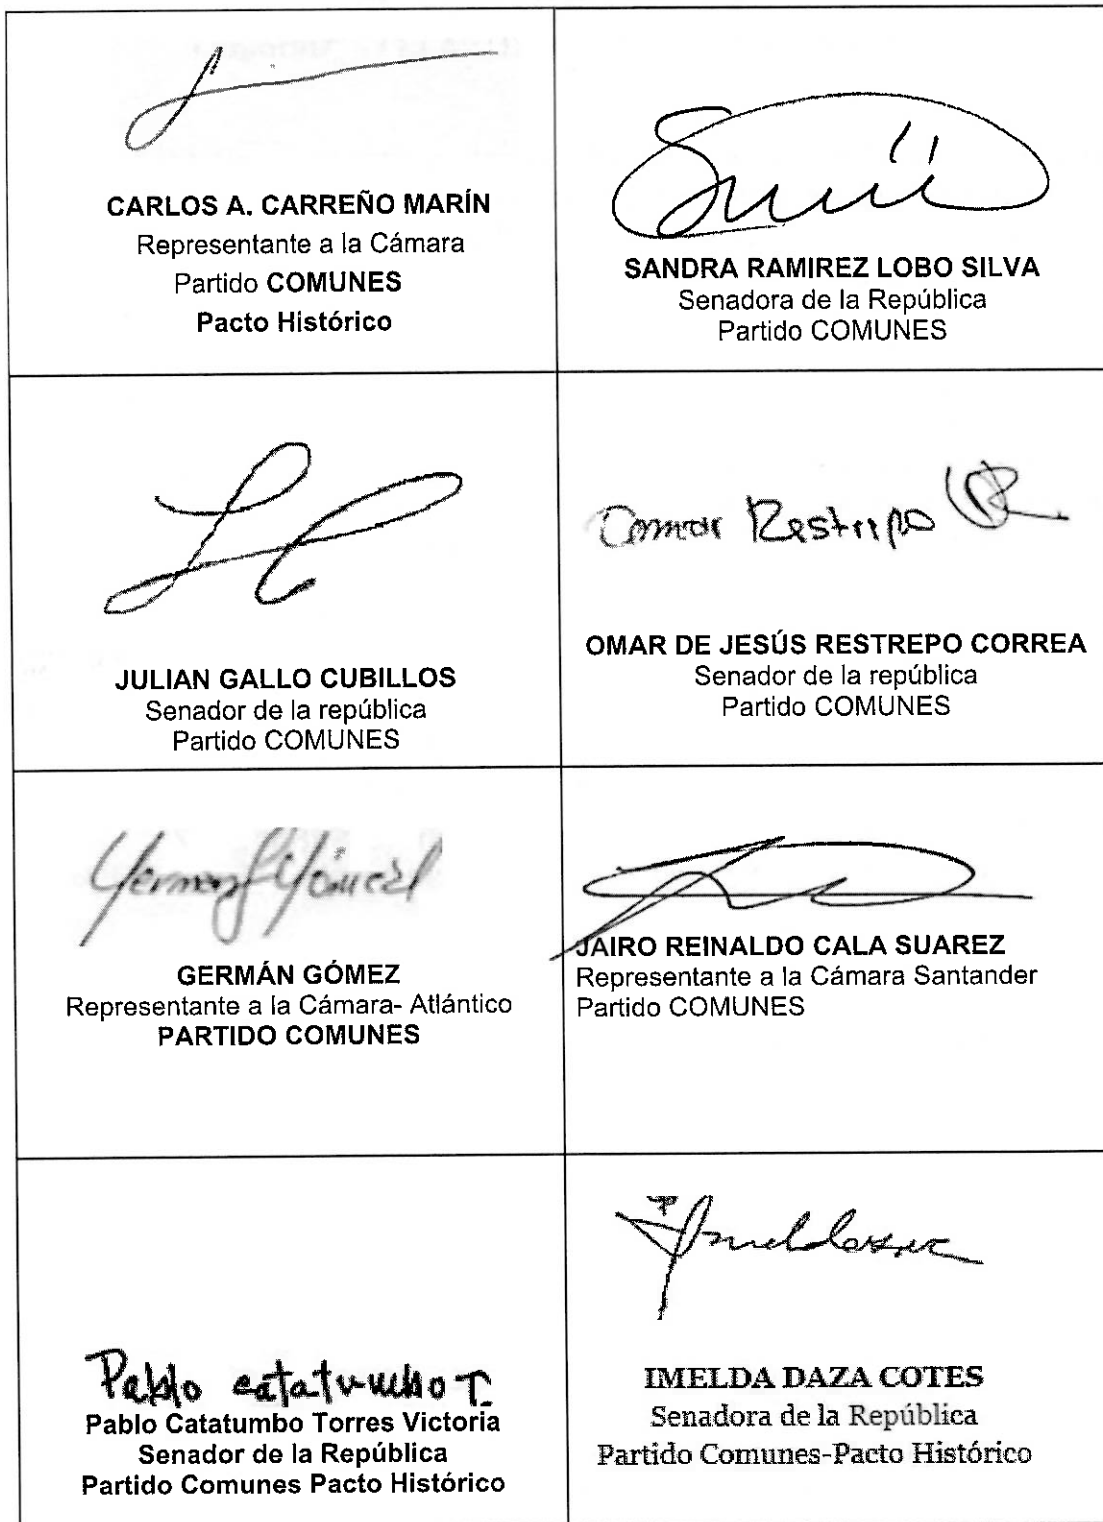 CARLOS A. CARREÑO MARÍN
Representante a la Cámara
Partido COMUNES
Pacto Histórico
SANDRA RAMIREZ LOBO SILVA
Senadora de la República
Partido COMUNES
JULIAN GALLO CUBILLOS
Senador de la república
Partido COMUNES
Omar Restrepo
OMAR DE JESÚS RESTREPO CORREA
Senador de la república
Partido COMUNES
German Gómez
GERMÁN GÓMEZ
Representante a la Cámara- Atlántico
PARTIDO COMUNES
JAIRO REINALDO CALA SUAREZ
Representante a la Cámara Santander
Partido COMUNES
Pablo catatumbo T.
Pablo Catatumbo Torres Victoria
Senador de la República
Partido Comunes Pacto Histórico
IMELDA DAZA COTES
Senadora de la República
Partido Comunes-Pacto Histórico